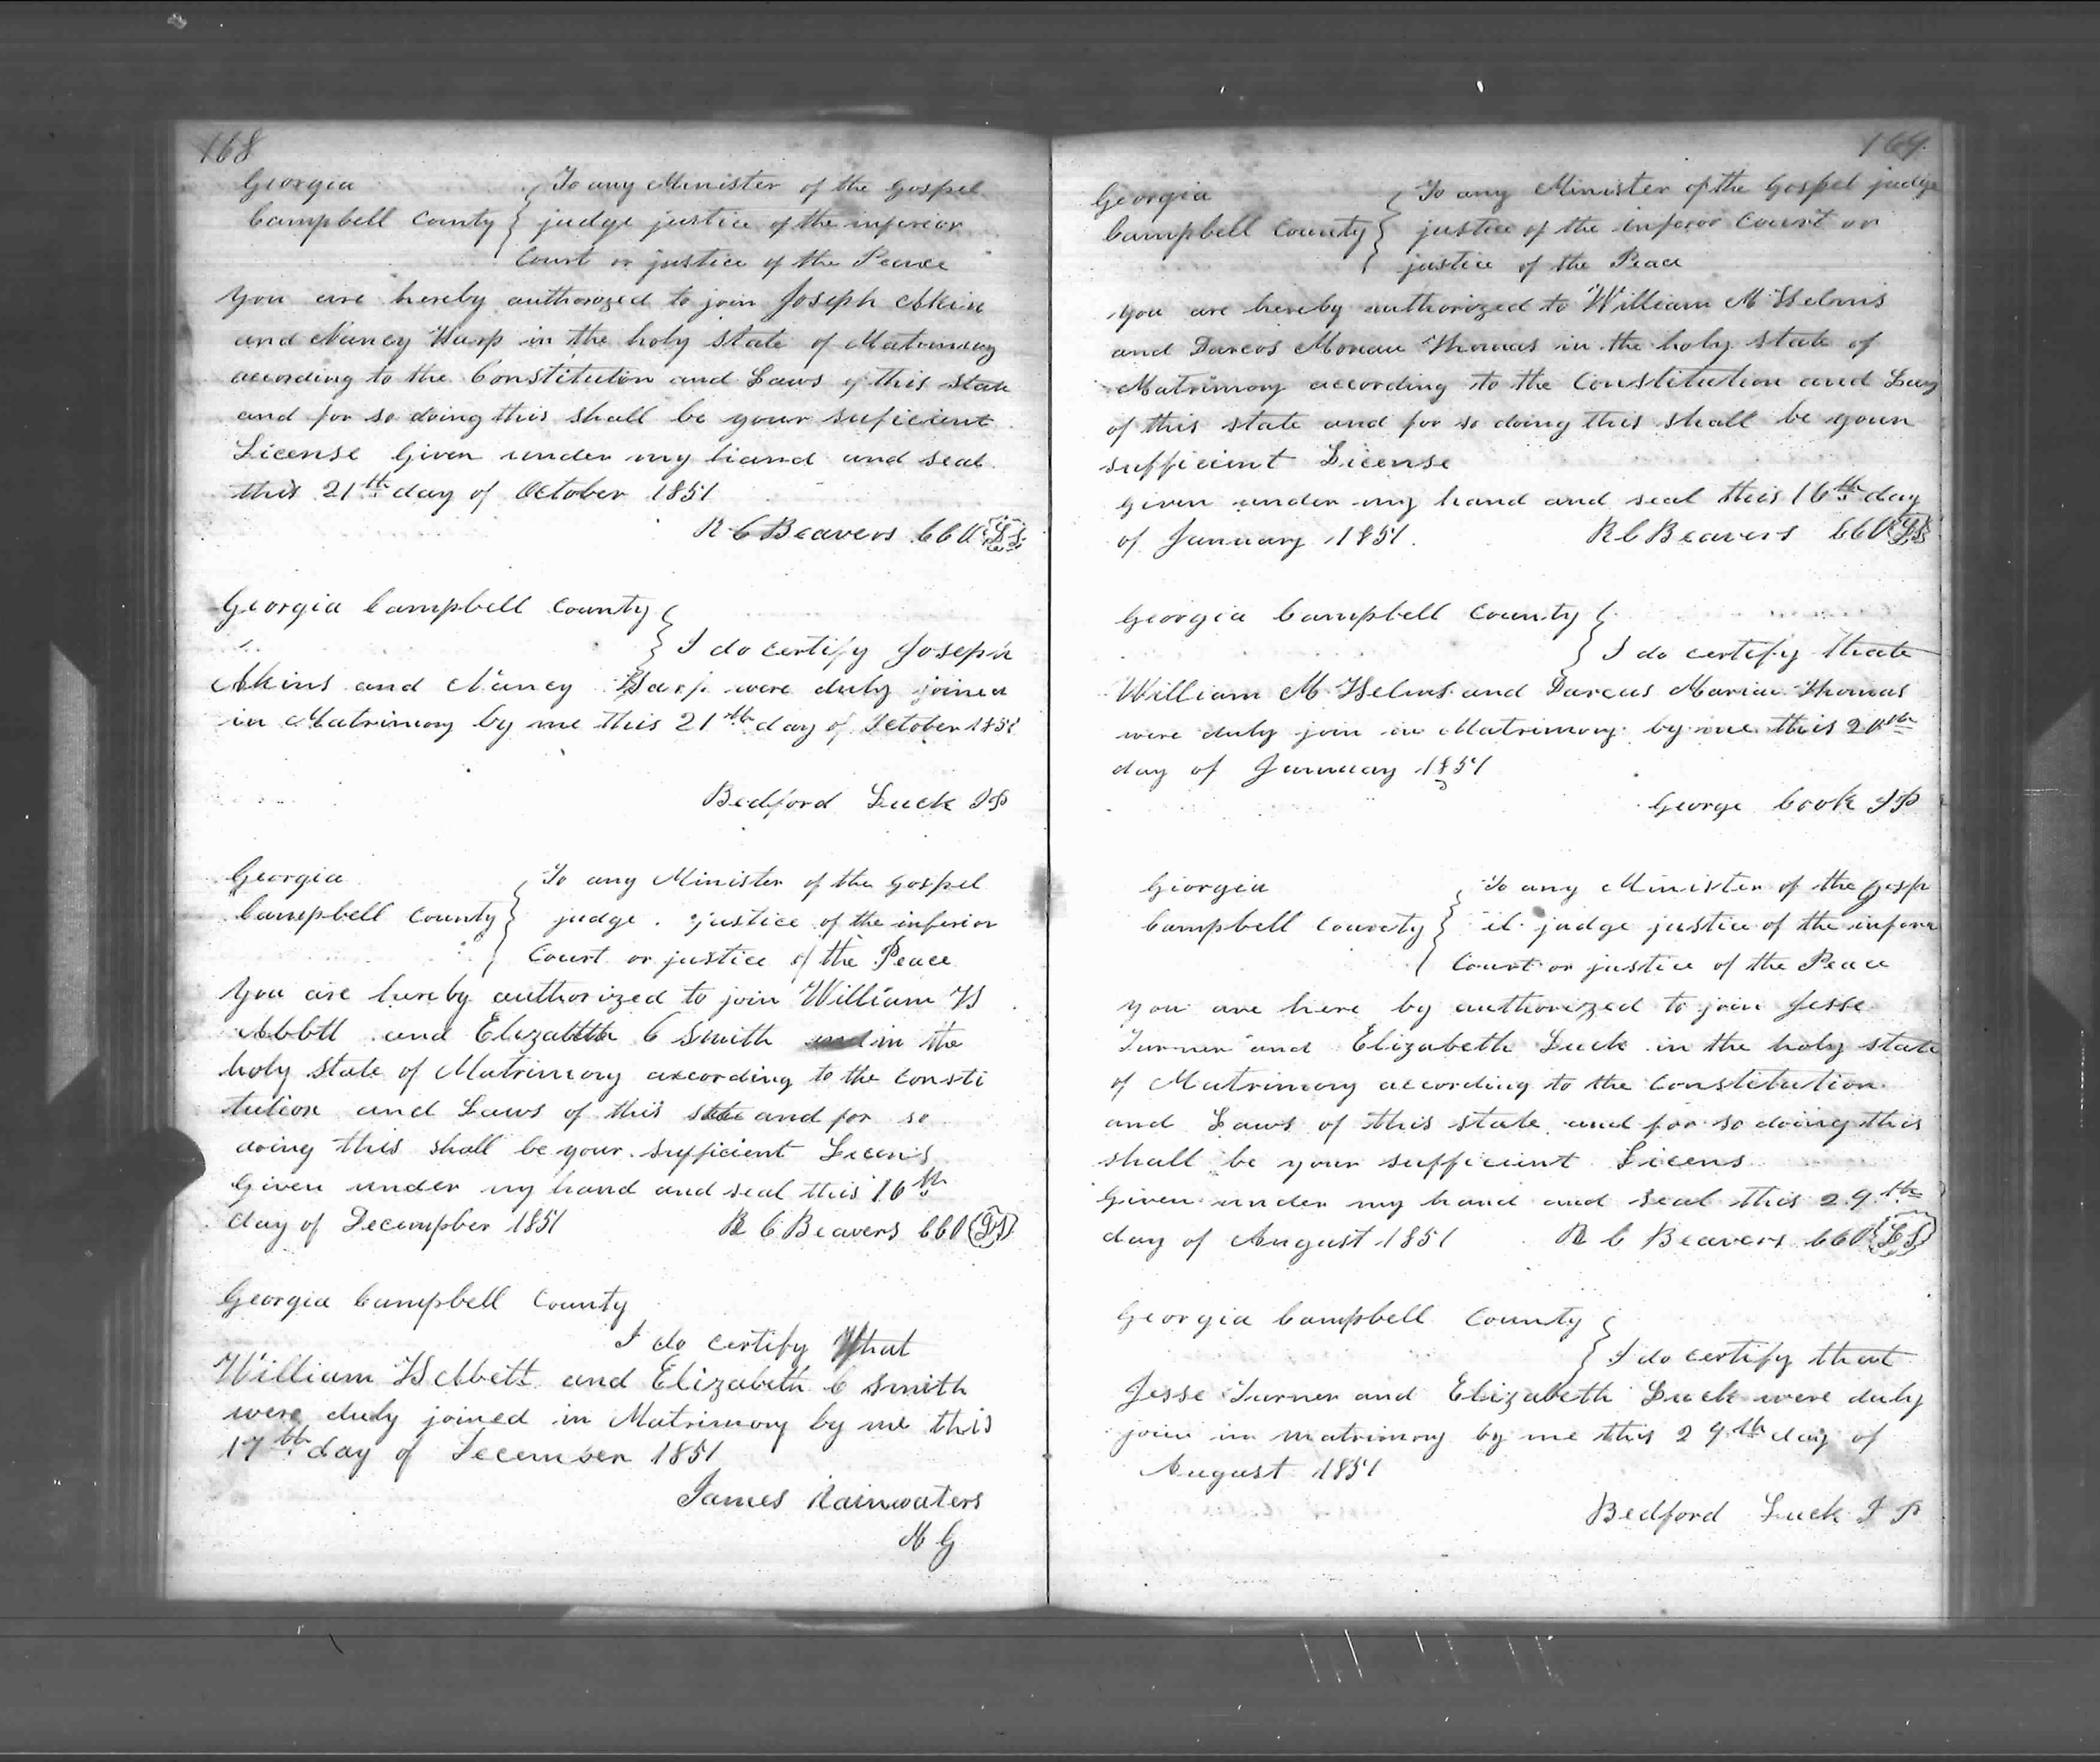 168
Georgia
Campbell County
To any Minister of the Gospel
judge justice of the inferior
Court or justice of the Peace
You are hereby authorized to join Joseph Akin
and Nancy Harp in the holy state of Matrimony
according to the Constitution and Laws of this state
and for so doing this shall be your suficient
License Given under my hand and seal
this 21th day of October 1851
R C Beavers CCO LS
Georgia Campbell County
I do certify Joseph
Akins and Nancy Harp were duly joined
in Matrimony by me this 21th day of October 1851
Bedford Luck JP
Georgia
Campbell County
To any Minister of the Gospel
judge justice of the inferior
Court or justice of the Peace
You are hereby authorized to join William H
Abbott and Elizabeth C Smith in the
holy state of Matrimony according to the consti
tution and Laws of this state and for so
doing this shall be your sufficient Licens
Given under my hand and seal this 16th
day of Decempber 1851
R C Beavers CCO LS
Georgia Campbell County
I do certify that
William H Abbett and Elizabeth C Smith
were duly joined in Matrimony by me this
17th day of December 1851
James Rainwaters
M G
169
Georgia
Campbell County
To any Minister of the Gospel judge
justice of the inferor Court or
justice of the Peace
you are hereby authorized to William M Helms
and Darcos Thomas in the holy state of
Matrimony according to the Constitution and Laws
of this state and for so doing this shall be your
sufficient License
given under my hand and seal this 16th day
of January 1851.
R C Beavers CCO LS
Georgia Campbell County
I do certify that
William M Helms and Darcus Mariah Thomas
were duly join in Matrimony by me this
day of January 1851
George Cook JP
Georgia
Campbell County
To any Minister of the Gosp
el judge justice of the inferor
Court or justice of the Peace
you are here by authorized to join Jesse
Turner and Elizabeth Luck in the holy state
of Matrimony according to the Constitution
and Laws of this state and for so doing this
shall be your sufficient Licens
Given under my hand and seal this 29th
day of August 1851
R C Beavers CCO LS
Georgia Campbell County
I do certify that
Jesse Turner and Elizabeth Luck were duly
join in matrimony by me this 29th day of
August 1851
Bedford Luck J P